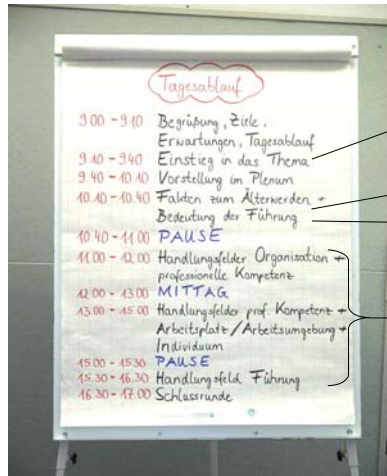 Tagesablauf
9.00 - 9.10 Begrüßung, Ziele,
Erwartungen, Tagesablauf
9.10 - 9.40 Einstieg in das Thema
9.40 - 10.10 Vorstellung im Plenum
10.10 - 10.40 Fakten zum Älterwerden +
Bedeutung der Führung
10.40 - 11.00 PAUSE
11.00 - 12.00 Handlungsfelder Organisation +
professionelle Kompetenz
12.00 - 13.00 MITTAG
13.00 - 15.00 Handlungsfelder prof. Kompetenz +
Arbeitsplatz/Arbeitsumgebung +
Individuum
15.00 - 15.30 PAUSE
15.30 - 16.30 Handlungsfeld Führung
16.30 - 17.00 Schlussrunde